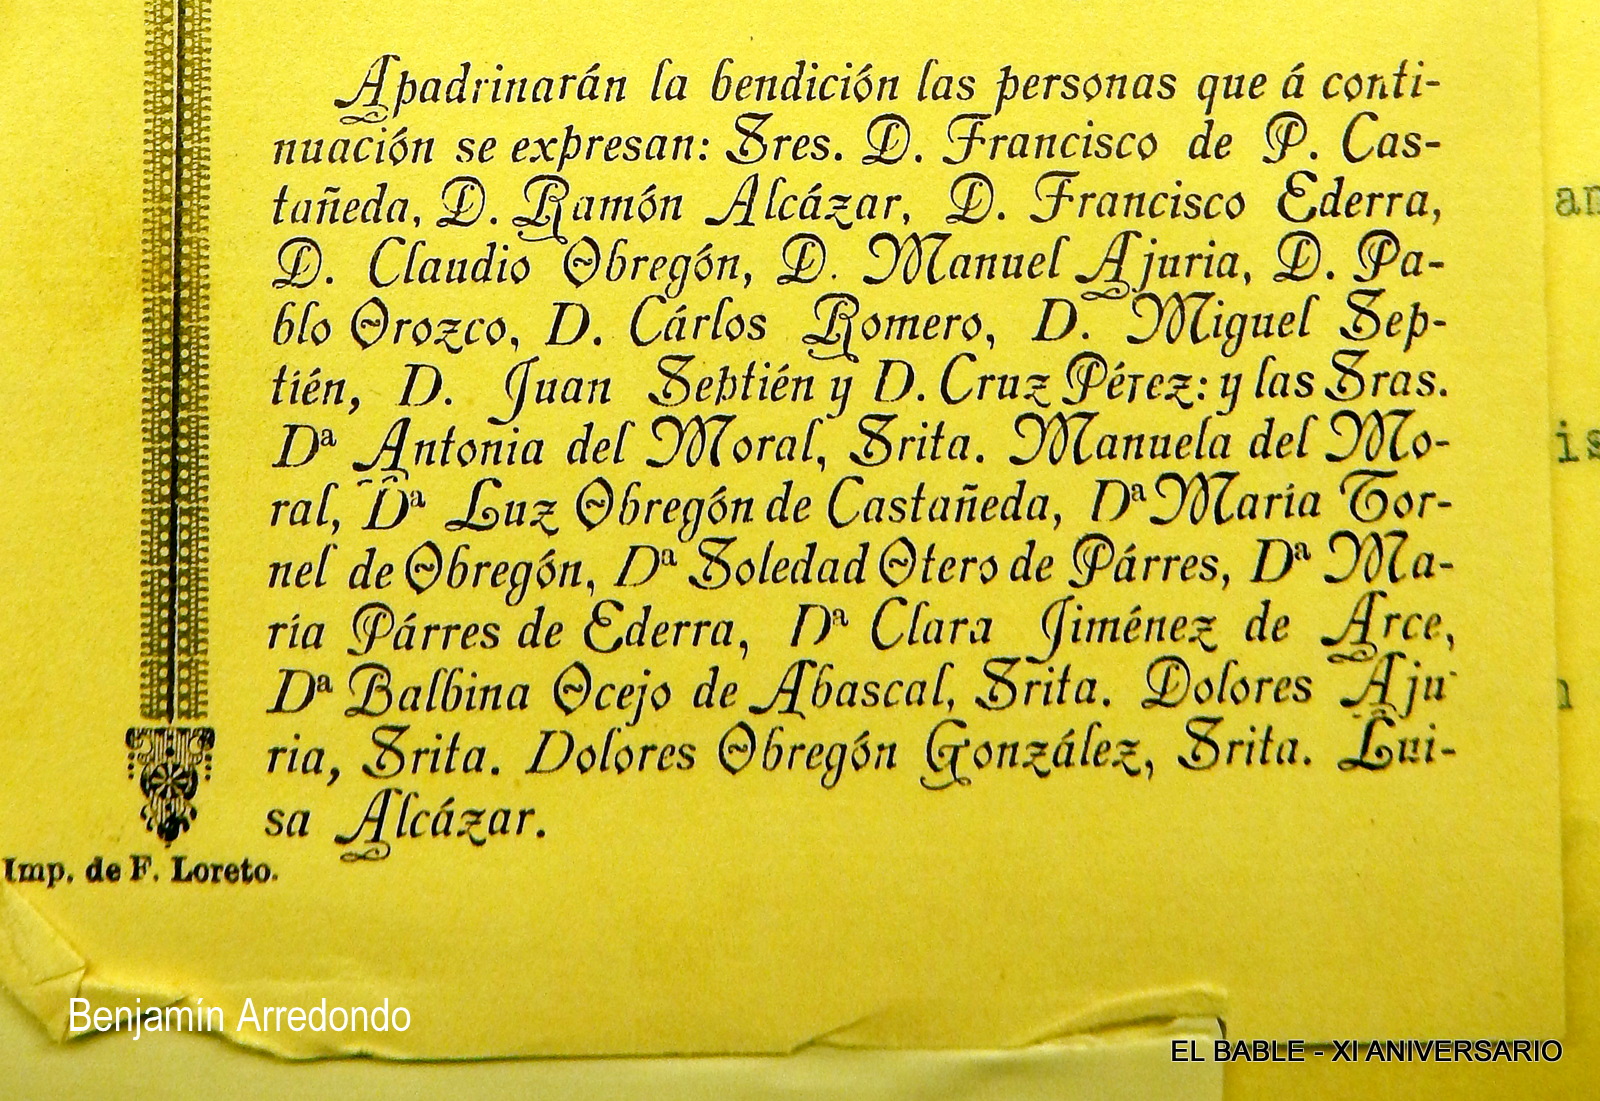 Apadrinarán la bendición las personas que á conti-
nuación se expresan: Sres. D. Francisco de P. Cas-
tañeda, D. Ramón Alcázar, D. Francisco Ederra,
D. Claudio Obregón, D. Manuel Ajuria, D. Pa-
blo Orozco, D. Cárlos Romero, D. Miguel Sep-
tién, D. Juan Septién y D. Cruz Pérez: y las Sras.
Dª Antonia del Moral, Srita. Manuela del Mo-
ral, Dª Luz Obregón de Castañeda, Dª María Tor-
nel de Obregón, Dª Soledad Otero de Párres, Dª Ma-
ría Párres de Ederra, Dª Clara Jiménez de Arce,
Dª Balbina Ocejo de Abascal, Srita. Dolores Aju-
ria, Srita. Dolores Obregón González, Srita. Lui-
sa Alcázar.
Imp. de F. Loreto.
an
is
n
Benjamín Arredondo
EL BABLE - XI ANIVERSARIO